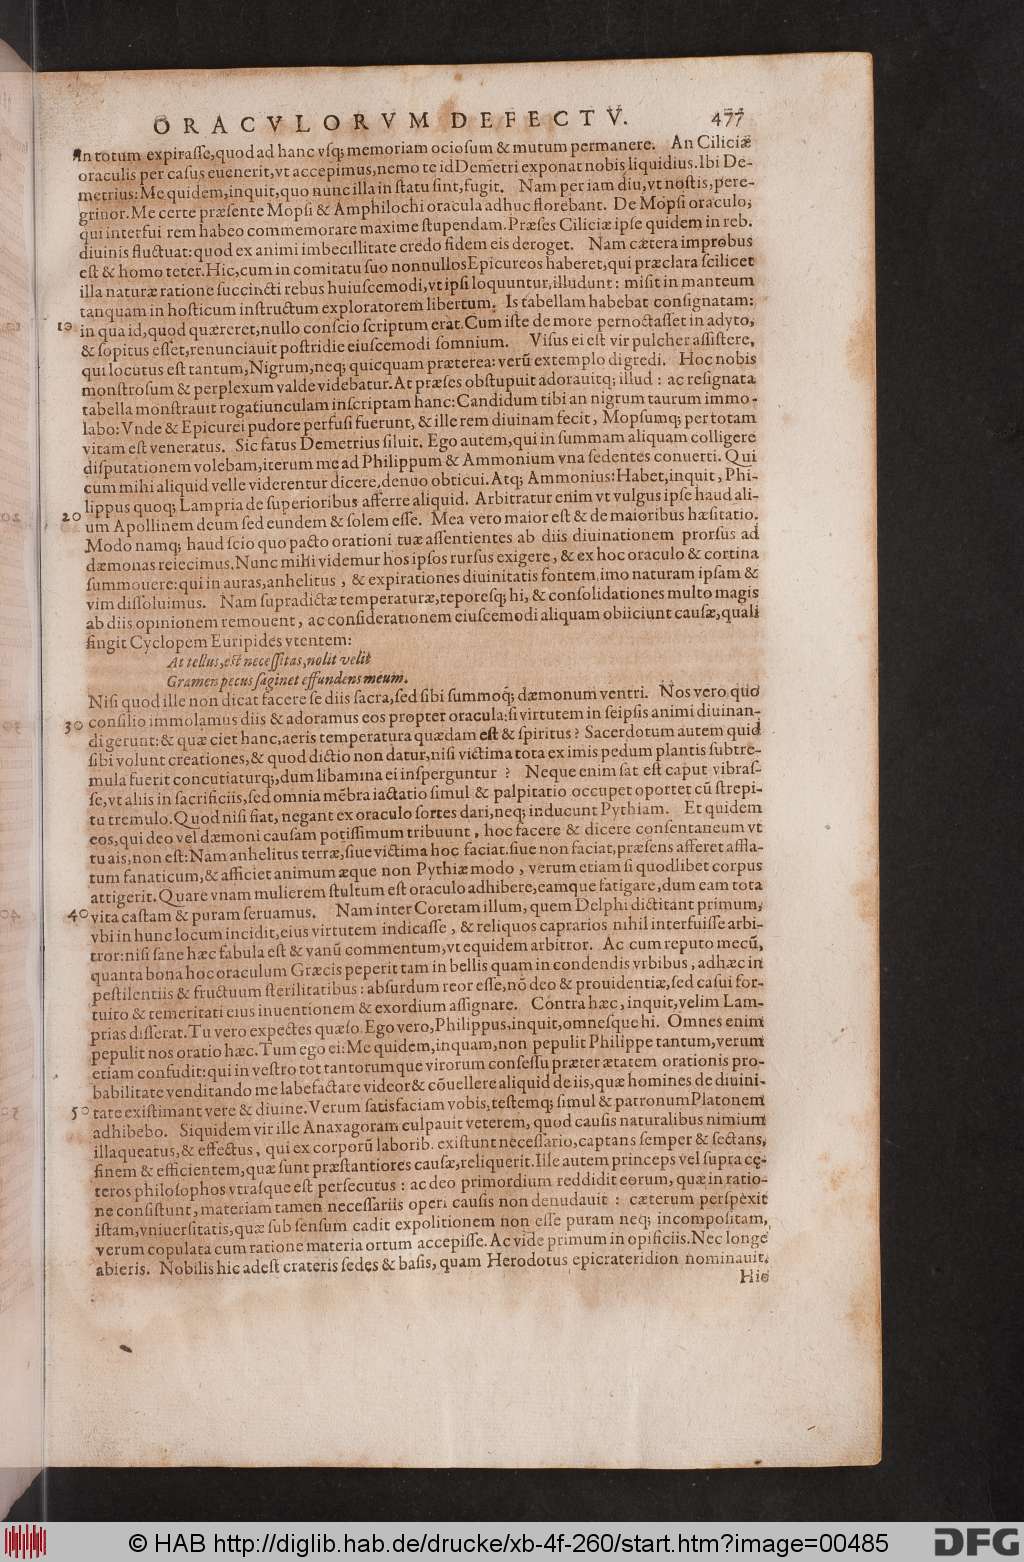 ORACVLORVM DEFECTV. 477
An totum expirasse, quod ad hanc vsq; memoriam ociosum & mutum permanere. An Ciliciæ
oraculis per casus euenerit, vt accepimus, nemo te id Demetri exponat nobis liquidius. Ibi De-
metrius: Me quidem, inquit, quo nunc illa in statu sint, fugit. Nam per iam diu, vt nostis, pere-
grinor. Me certe præsente Mopsi & Amphilochi oracula adhuc florebant. De Mopsi oraculo,
qui interfui rem habeo commemorare maxime stupendam. Præses Ciliciæ ipse quidem in reb.
diuinis fluctuat: quod ex animi imbecillitate credo fidem eis deroget. Nam cætera improbus
est & homo teter. Hic, cum in comitatu suo nonnullos Epicureos haberet, qui præclara scilicet
illa naturæ ratione succincti rebus huiuscemodi, vt ipsi loquuntur, illudunt: misit in manteum
tanquam in hosticum instructum exploratorem libertum. Is tabellam habebat consignatam:
10 in qua id, quod quæreret, nullo conscio scriptum erat. Cum iste de more pernoctasset in adyto,
& sopitus esset, renunciauit postridie eiuscemodi somnium. Visus ei est vir pulcher assistere,
qui locutus est tantum, Nigrum, neq; quicquam præterea: verū extemplo digredi. Hoc nobis
monstrosum & perplexum valde videbatur. At præses obstupuit adorauitq; illud: ac resignata
tabella monstrauit rogatiunculam inscriptam hanc: Candidum tibi an nigrum taurum immo-
labo: Vnde & Epicurei pudore perfusi fuerunt, & ille rem diuinam fecit, Mopsumq; per totam
vitam est veneratus. Sic fatus Demetrius siluit. Ego autem, qui in summam aliquam colligere
disputationem volebam, iterum me ad Philippum & Ammonium vna sedentes conuerti. Qui
cum mihi aliquid velle viderentur dicere, denuo obticui. Atq; Ammonius: Habet, inquit, Phi-
lippus quoq; Lampria de superioribus afferre aliquid. Arbitratur enim vt vulgus ipse haud ali-
20 um Apollinem deum sed eundem & solem esse. Mea vero maior est & de maioribus hæsitatio.
Modo namq; haud scio quo pacto orationi tuæ assentientes ab diis diuinationem prorsus ad
dæmonas reiecimus. Nunc mihi videmur hos ipsos rursus exigere, & ex hoc oraculo & cortina
summouere: qui in auras, anhelitus, & expirationes diuinitatis fontem, imo naturam ipsam &
vim dissoluimus. Nam supradictæ temperaturæ, teporesq; hi, & consolidationes multo magis
ab diis opinionem remouent, ac considerationem eiuscemodi aliquam obiiciunt causæ, quali
fingit Cyclopem Euripides vtentem:
At tellus, est necessitas, nolit velit
Gramen pecus saginet effundens meum.
Nisi quod ille non dicat facere se diis sacra, sed sibi summoq; dæmonum ventri. Nos vero quo
30 consilio immolamus diis & adoramus eos propter oracula: si virtutem in seipsis animi diuinan-
di gerunt: & quæ ciet hanc, aeris temperatura quædam est & spiritus? Sacerdotum autem quid
sibi volunt creationes, & quod dictio non datur, nisi victima tota ex imis pedum plantis subtre-
mula fuerit concutiaturq;, dum libamina ei insperguntur? Neque enim sat est caput vibras-
se, vt aliis in sacrificiis, sed omnia mēbra iactatio simul & palpitatio occupet oportet cū strepi-
tu tremulo. Quod nisi fiat, negant ex oraculo sortes dari, neq; inducunt Pythiam. Et quidem
eos, qui deo vel dæmoni causam potissimum tribuunt, hoc facere & dicere consentaneum vt
tu ais, non est: Nam anhelitus terræ, siue victima hoc faciat. siue non faciat, præsens afferet affla-
tum fanaticum, & afficiet animum æque non Pythiæ modo, verum etiam si quodlibet corpus
attigerit. Quare vnam mulierem stultum est oraculo adhibere, eamque fatigare, dum eam tota
40 vita castam & puram seruamus. Nam inter Coretam illum, quem Delphi dictitant primum,
vbi in hunc locum incidit, eius virtutem indicasse, & reliquos caprarios nihil interfuisse arbi-
tror: nisi sane hæc fabula est & vanū commentum, vt equidem arbitror. Ac cum reputo mecū,
quanta bona hoc oraculum Græcis peperit tam in bellis quam in condendis vrbibus, adhæc in
pestilentiis & fructuum sterilitatibus: absurdum reor esse, nō deo & prouidentiæ, sed casui for-
tuito & temeritati eius inuentionem & exordium assignare. Contra hæc, inquit, velim Lam-
prias disserat. Tu vero expectes quæso. Ego vero, Philippus, inquit, omnesque hi. Omnes enim
pepulit nos oratio hæc. Tum ego ei: Me quidem, inquam, non pepulit Philippe tantum, verum
etiam confudit: qui in vestro tot tantorumque virorum consessu præter ætatem orationis pro-
babilitate venditando me labefactare videor & cōuellere aliquid de iis, quæ homines de diuini-
50 tate existimant vere & diuine. Verum satisfaciam vobis, testemq; simul & patronum Platonem
adhibebo. Siquidem vir ille Anaxagoram culpauit veterem, quod causis naturalibus nimium
illaqueatus, & effectus, qui ex corporū laborib. existunt necessario, captans semper & sectans,
finem & efficientem, quæ sunt præstantiores causæ, reliquerit. Ille autem princeps vel supra cę-
teros philosophos vtrasque est persecutus: ac deo primordium reddidit eorum, quæ in ratio-
ne consistunt, materiam tamen necessariis operi causis non denudauit: cæterum perspexit
istam, vniuersitatis, quæ sub sensum cadit expolitionem non esse puram neq; incompositam,
verum copulata cum ratione materia ortum accepisse. Ac vide primum in opificiis. Nec longe
abieris. Nobilis hic adest crateris sedes & basis, quam Herodotus epicrateridion nominauit.
Hic
© HAB http://diglib.hab.de/drucke/xb-4f-260/start.htm?image=00485
DFG